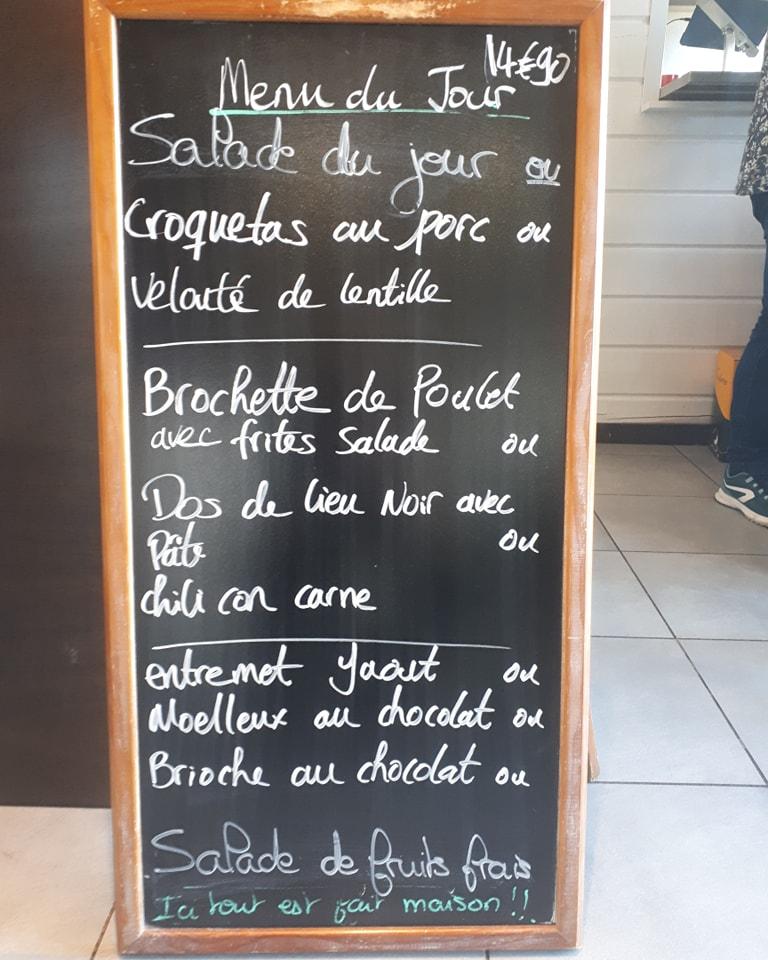 14€90
Menu du Jour
Salade du jour ou
Croquetas au porc ou
Velouté de lentille
Brochette de Poulet
avec frites salade ou
Dos de lieu Noir avec
Pâte ou
chili con carne
entremet Yaout ou
Moelleux au chocolat ou
Brioche au chocolat ou
Salade de fruits frais
Ici tout est fait maison !!